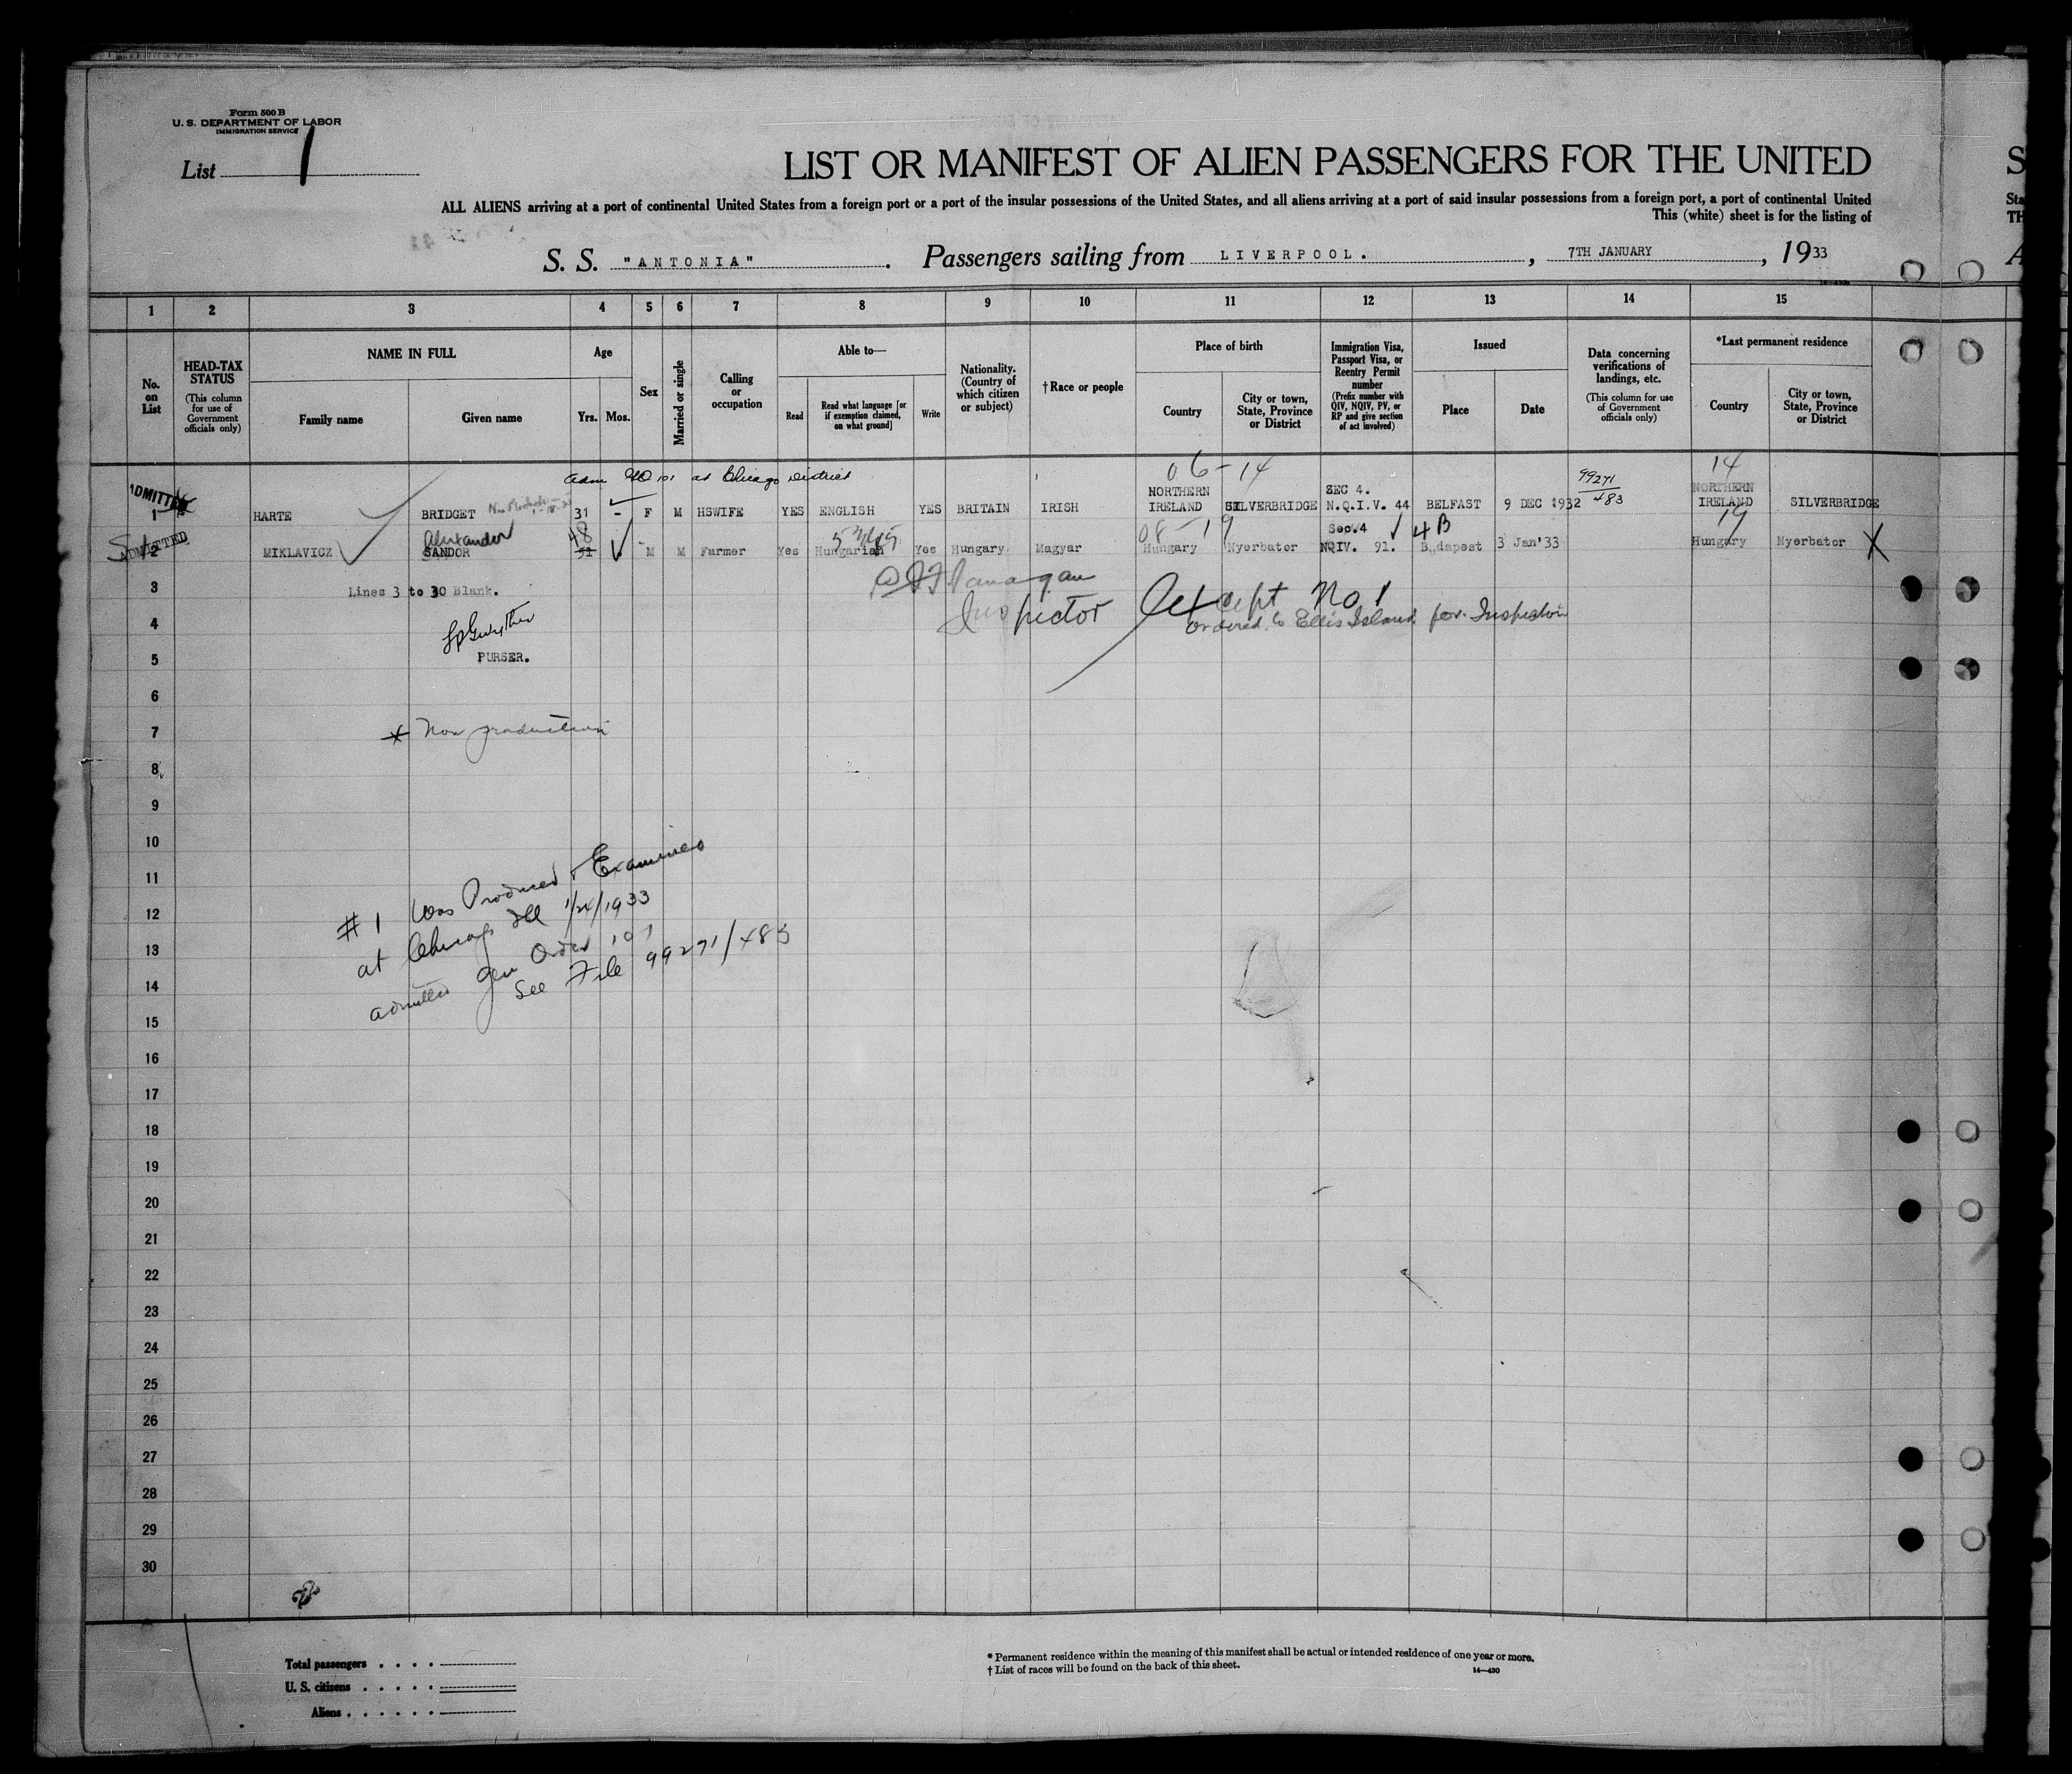 Form 500 B
U. S. DEPARTMENT OF LABOR
IMMIGRATION SERVICE
List 1
LIST OR MANIFEST OF ALIEN PASSENGERS FOR THE UNITED
ALL ALIENS arriving at a port of continental United States from a foreign port or a port of the insular possessions of the United States, and all aliens arriving at a port of said insular possessions from a foreign port, a port of continental United
This (white) sheet is for the listing of
S. S. "ANTONIA". Passengers sailing from LIVERPOOL. , 7TH JANUARY , 1933
1 2 3 4 5 6 7 8 9 10 11 12 13 14 15
No. on List
HEAD-TAX STATUS (This column for use of Government officials only)
NAME IN FULL
Family name
Given name
Age
Yrs. Mos.
Sex
Married or single
Calling or occupation
Able to—
Read
Read what language [or if exemption claimed, on what ground]
Write
Nationality. (Country of which citizen or subject)
†Race or people
Place of birth
Country
City or town, State, Province or District
Immigration Visa, Passport Visa, or Reentry Permit number (Prefix number with QIV, NQIV, PV, or RP and give section of act involved)
Issued
Place
Date
Data concerning verifications of landings, etc. (This column for use of Government officials only)
*Last permanent residence
Country
City or town, State, Province or District
adm GO 101 at Chicago District
06-14
99271/483
14
ADMITTED
1 HARTE BRIDGET 31 - F M HSWIFE YES ENGLISH YES BRITAIN IRISH NORTHERN IRELAND SILVERBRIDGE SEC 4. N.Q.I.V. 44 BELFAST 9 DEC 1932 NORTHERN IRELAND SILVERBRIDGE
Alexander 48 08-19 4B 19
ADMITTED
2 MIKLAVICZ SANDOR 51 - M M Farmer Yes Hungarian Yes Hungary Magyar Hungary Nyerbator Sec.4 NQIV. 91. Budapest 3 Jan'33 Hungary Nyerbator X
3 Lines 3 to 30 Blank.
Flanagan
Inspector
Except No 1
ordered to Ellis Island for Inspection
4
PURSER.
5
6
7 * Non production
8
9
10
11
12 #1 Was Produced & Examined
13 at Chicago Ill 1/24/1933
14 admitted gen Order 101
See File 99271/483
15
16
17
18
19
20
21
22
23
24
25
26
27
28
29
30
Total passengers . . . .
U. S. citizens . . . . .
Aliens . . . . . .
* Permanent residence within the meaning of this manifest shall be actual or intended residence of one year or more.
† List of races will be found on the back of this sheet.
14—430